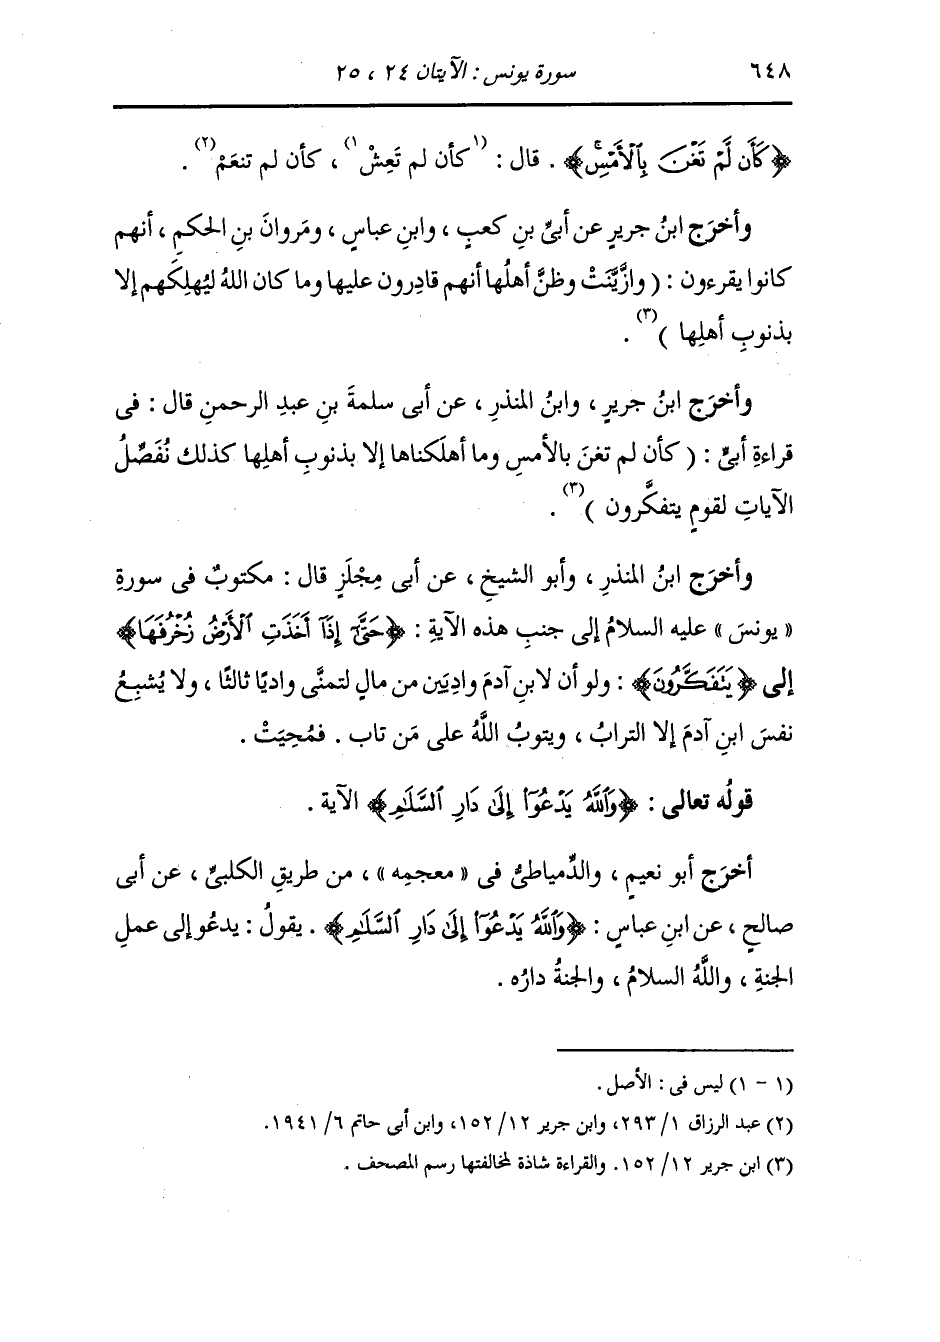 ٦٤٨ سورة يونس : الآيتان ٢٤ ، ٢٥
﴿كَأَن لَّمْ تَغْنَ بِٱلْأَمْسِۚ﴾ . قال : (١كأن لم تَعِشْ١) ، كأن لم تنعَمْ(٢) .
وأخرَج ابنُ جريرٍ عن أبيِّ بنِ كعبٍ ، وابنِ عباسٍ ، ومَروانَ بنِ الحكمِ ، أنهم
كانوا يقرءون : ( وازَّيَّنَتْ وظنَّ أهلُها أنهم قادِرون عليها وما كان اللهُ ليُهلِكَهم إلا
بذنوبِ أهلِها )(٣) .
وأخرَج ابنُ جريرٍ ، وابنُ المنذرِ ، عن أبى سلمةَ بنِ عبدِ الرحمنِ قال : فى
قراءةِ أبيٍّ : ( كأن لم تغنَ بالأمسِ وما أهلَكناها إلا بذنوبِ أهلِها كذلك نُفَصِّلُ
الآياتِ لقومٍ يتفكَّرون )(٣) .
وأخرَج ابنُ المنذرِ ، وأبو الشيخِ ، عن أبى مِجْلَزٍ قال : مكتوبٌ فى سورةِ
« يونسَ » عليه السلامُ إلى جنبِ هذه الآيةِ : ﴿حَتَّىٰٓ إِذَآ أَخَذَتِ ٱلْأَرْضُ زُخْرُفَهَا﴾
إلى ﴿يَتَفَكَّرُونَ﴾ : ولو أن لابنِ آدمَ وادِيَين من مالٍ لتمنَّى واديًا ثالثًا ، ولا يُشبِعُ
نفسَ ابنِ آدمَ إلا الترابُ ، ويتوبُ اللَّهُ على مَن تاب . فمُحِيَتْ .
قولُه تعالى : ﴿وَٱللَّهُ يَدْعُوٓا۟ إِلَىٰ دَارِ ٱلسَّلَـٰمِ﴾ الآية .
أخرَج أبو نعيمٍ ، والدِّمياطيُّ فى « معجمِه » ، من طريقِ الكلبيِّ ، عن أبى
صالحٍ ، عن ابنِ عباسٍ : ﴿وَٱللَّهُ يَدْعُوٓا۟ إِلَىٰ دَارِ ٱلسَّلَـٰمِ﴾ . يقولُ : يدعُو إلى عملِ
الجنةِ ، واللَّهُ السلامُ ، والجنةُ دارُه .
(١ - ١) ليس فى : الأصل .
(٢) عبد الرزاق ١/ ٢٩٣، وابن جرير ١٢/ ١٥٢، وابن أبى حاتم ٦/ ١٩٤١.
(٣) ابن جرير ١٢/ ١٥٢. والقراءة شاذة لمخالفتها رسم المصحف .